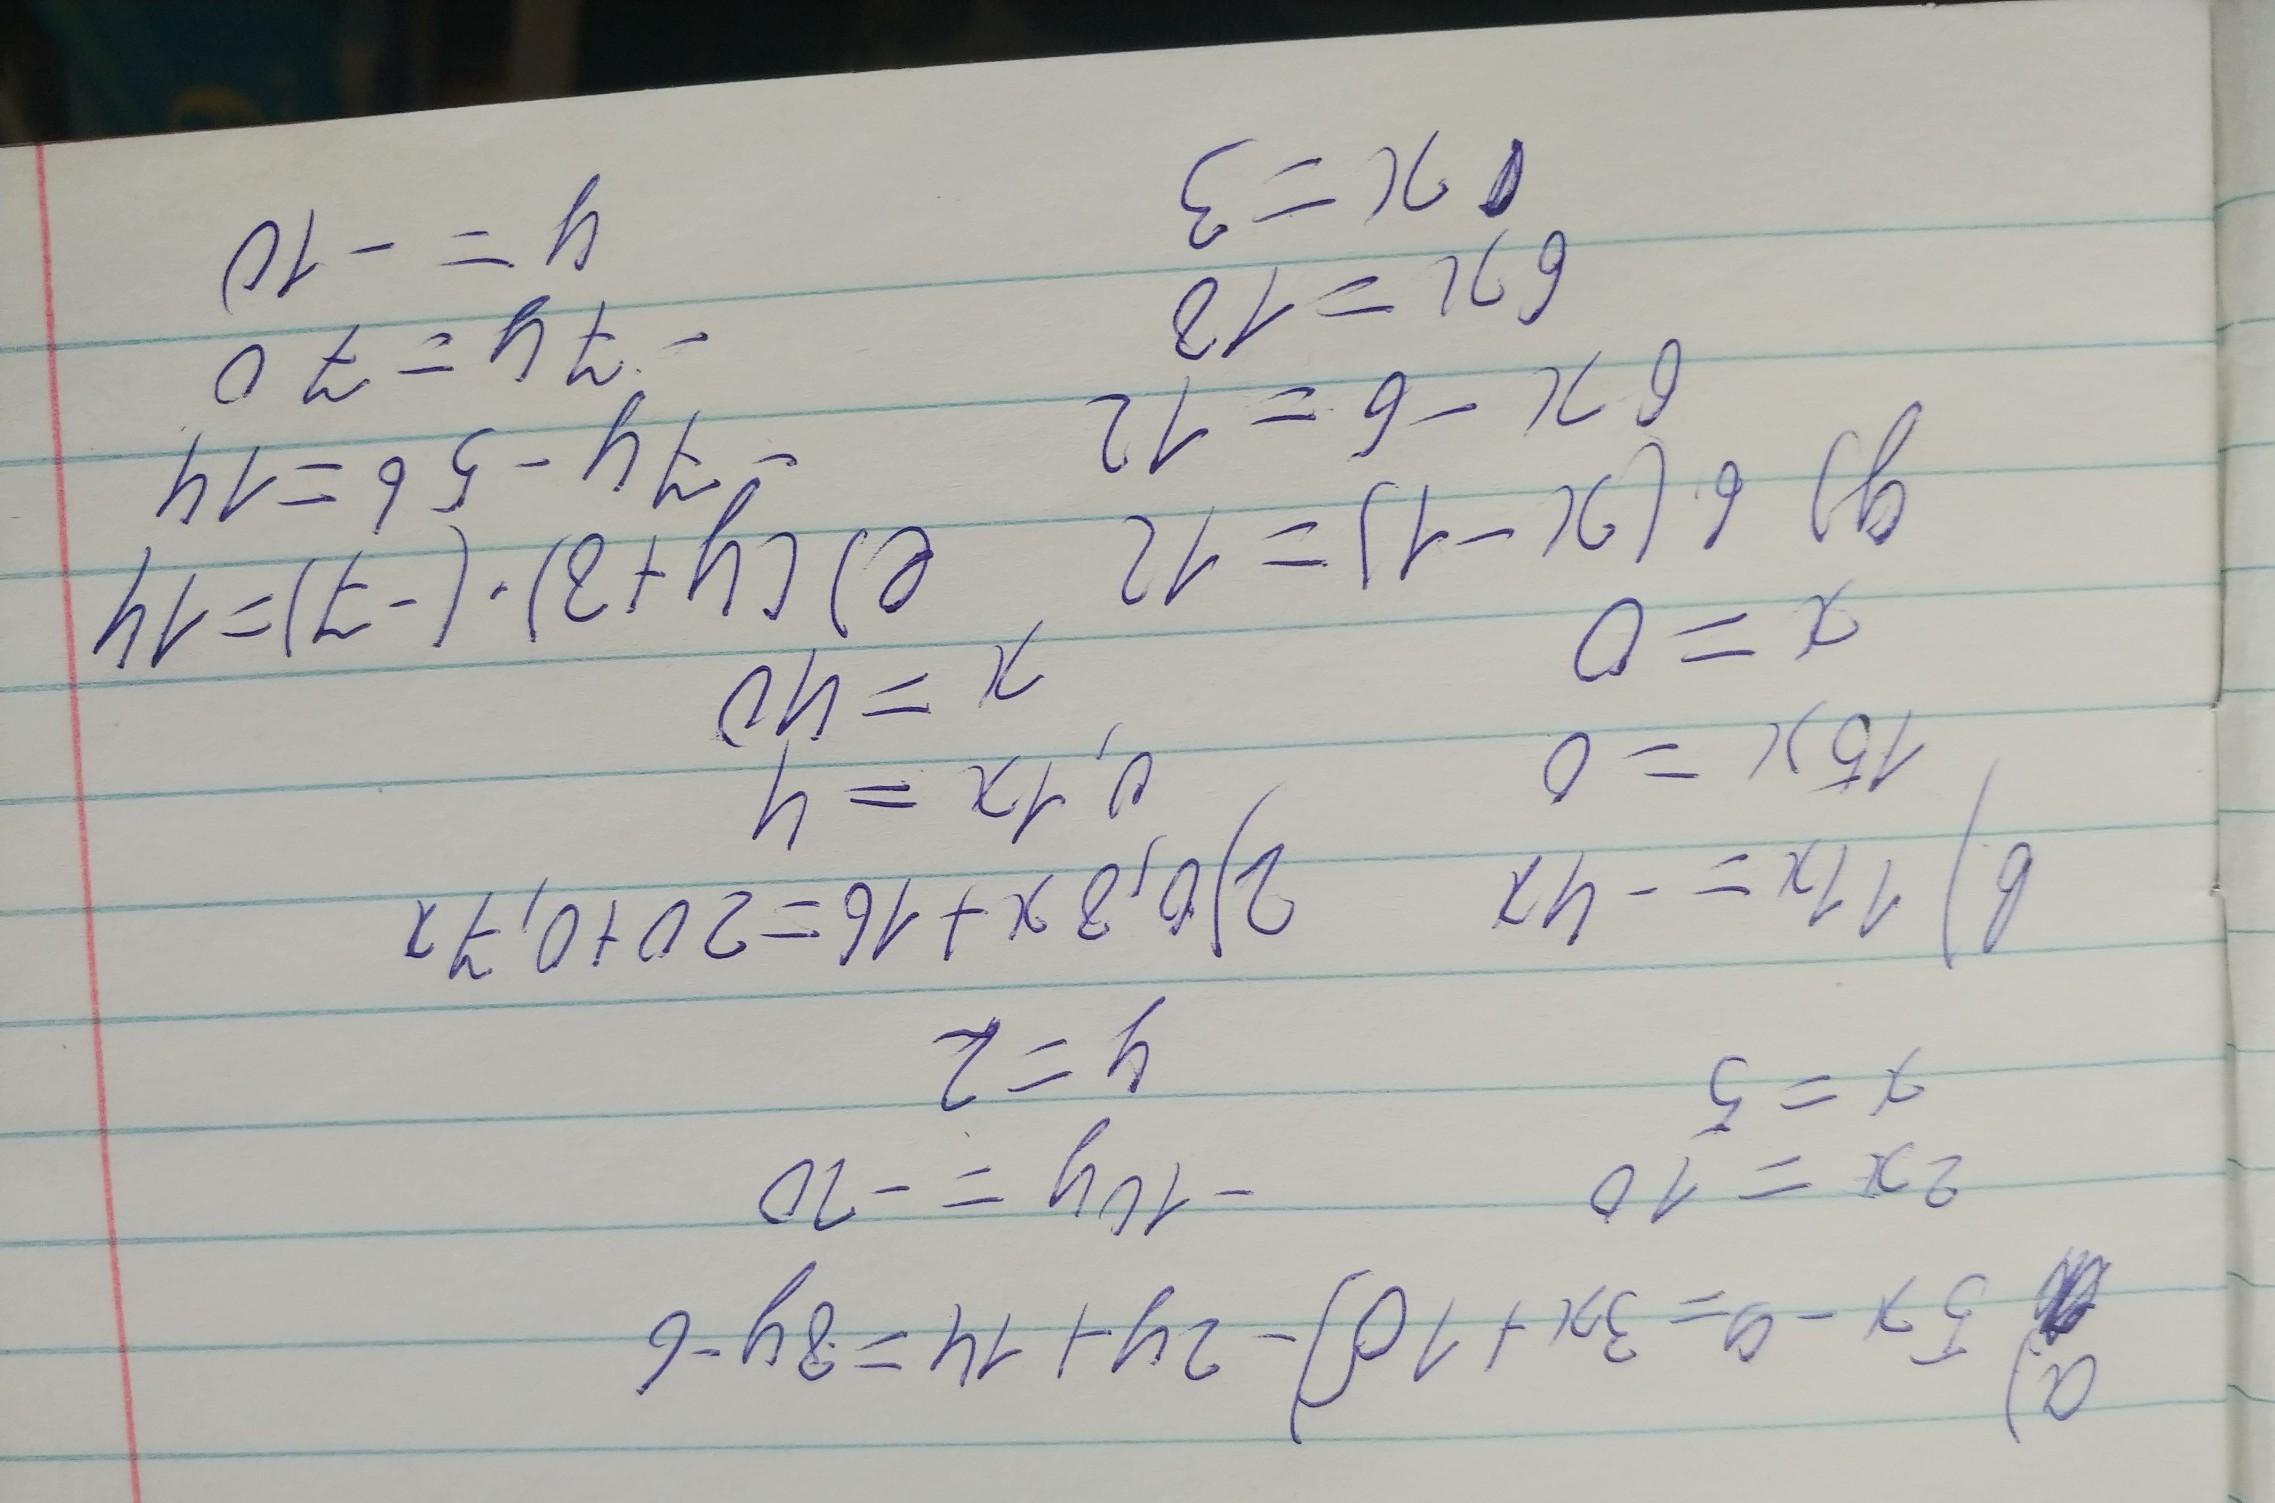 а) 5x - 0 = 3x + 10 б) - 2y + 14 = 8y - 6
2x = 10 - 10y = - 20
x = 5 y = 2
в) 11x = - 4x г) 0,8x + 16 = 20 + 0,7x
15x = 0 0,1x = 4
x = 0 x = 40
д) 6 · (x - 1) = 12 е) (y + 8) · (-7) = 14
6x - 6 = 12 - 7y - 56 = 14
6x = 18 - 7y = 70
x = 3 y = - 10